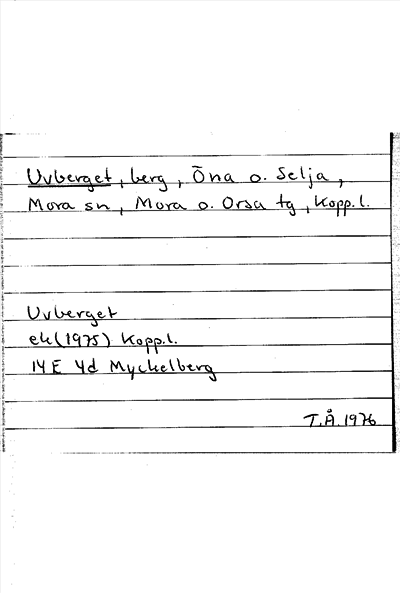 Uvberget, berg, Öna o. Selja,
Mora sn, Mora o. Orsa tg, Kopp.l.
Uvberget
ek(1975) Kopp.l.
14E 4d Myckelberg
T.Å.1976